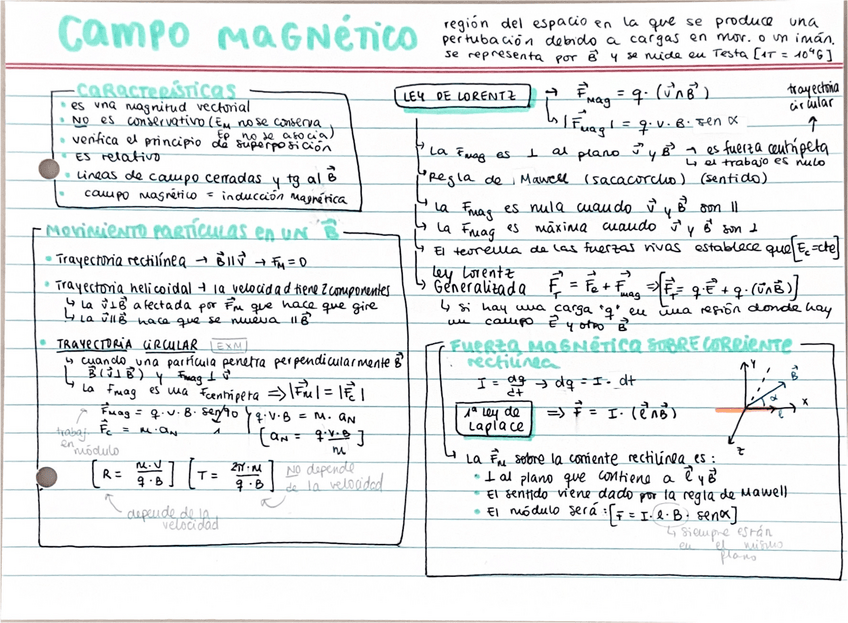 CAMPO MAGNÉTICO
región del espacio en la que se produce una
pertubación debido a cargas en mov. o un imán.
se representa por B⃗ y se mide en Testa [1T = 10⁴G]
CARACTERÍSTICAS
• es una magnitud vectorial
• NO es conservativo (EM no se conserva)
Ep no se asocia)
• verifica el principio de superposición
• es relativo
• líneas de campo cerradas y tg al B⃗
• campo magnético = inducción magnética
MOVIMIENTO PARTÍCULAS EN UN B⃗
• Trayectoria rectilínea → B⃗ || v⃗ → FM = 0
• Trayectoria helicoidal → la velocidad tiene 2 componentes
↳ La v⃗⊥B⃗ afectada por F⃗M que hace que gire
↳ La v⃗||B⃗ hace que se mueva ||B⃗
• TRAYECTORIA CIRCULAR [EXM]
↳ cuando una partícula penetra perpendicularmente B⃗
B⃗ (v⃗⊥B⃗) y Fmag ⊥ v⃗
↳ La Fmag es una Fcentrípeta ⇒ |F⃗M| = |F⃗c|
F⃗mag = q · v · B · sen 90
1
F⃗c = m · aN
q · v · B = m · aN
[aN = q·v·B / m]
trabaj.
en
módulo
[R = m·v / q·B] [T = 2π·m / q·B]
No depende
de la velocidad
depende de la
velocidad
LEY DE LORENTZ → F⃗mag = q · (v⃗∧B⃗)
↳ |F⃗mag| = q · v · B · sen α
trayectoria
circular
↑
↳ La Fmag es ⊥ al plano v⃗ y B⃗ → es fuerza centrípeta
↳ el trabajo es nulo
↳ Regla de Mawell (sacacorcho) (sentido)
↳ La Fmag es nula cuando v⃗ y B⃗ son ||
↳ La Fmag es máxima cuando v⃗ y B⃗ son ⊥
↳ El teorema de las fuerzas vivas establece que [Ec = cte]
ley Lorentz
↳ Generalizada F⃗T = F⃗e + F⃗mag ⇒ [F⃗T = q·E⃗ + q·(v⃗∧B⃗)]
↳ si hay una carga "q" en una región donde hay
un campo E⃗ y otro B⃗
FUERZA MAGNÉTICA SOBRE CORRIENTE
rectilínea
I = dq/dt → dq = I · dt
1ª ley de
Laplace
⇒ F⃗ = I · (ℓ⃗∧B⃗)
Y
B⃗
α
ℓ
X
Z
↳ La F⃗M sobre la corriente rectilínea es :
• ⊥ al plano que contiene a ℓ⃗ y B⃗
• El sentido viene dado por la regla de Mawell
• El módulo será : [F = I · ℓ · B · senα]
↳ siempre están
en el mismo
plano